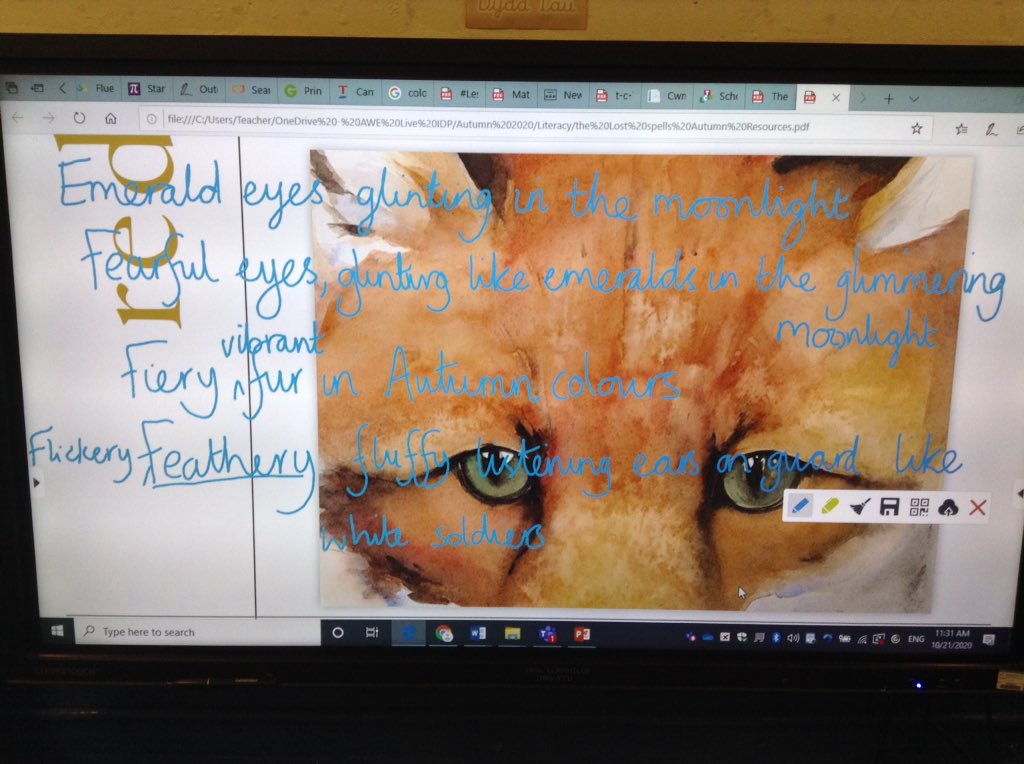 Dydd Iau
Flue
Star
Out
Sear
Prin
Can
colo
#Les
Mat
New
t-c-
Cwn
Sch
The
file:///C:/Users/Teacher/OneDrive%20-%20AWE%20Live%20IDP/Autumn%202020/Literacy/the%20Lost%20spells%20Autumn%20Resources.pdf
red
Emerald eyes glinting in the moonlight
Fearful eyes, glinting like emeralds in the glimmering
moonlight
vibrant
Fiery ^ fur in Autumn colours
Flickery Feathery fluffy listening ears on guard like
white soldiers
Type here to search
ENG
11:31 AM
10/21/2020
CLEVERTOUCH